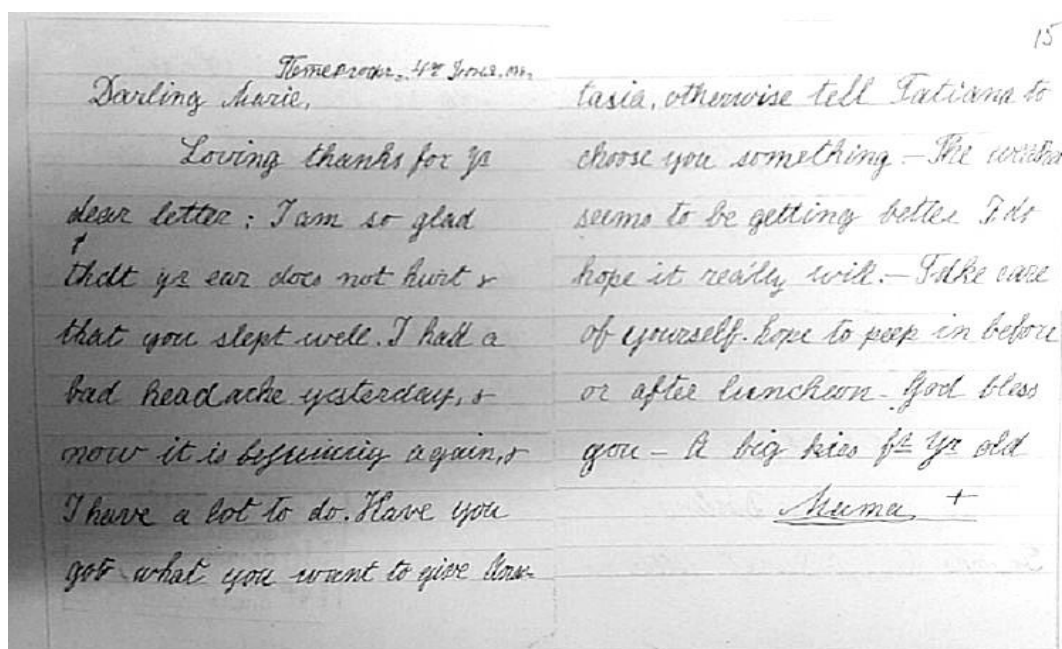 15
Петергофъ. 4го Іюня.
Darling Marie,
Loving thanks for yr
dear letter; I am so glad
that yr ear does not hurt &
that you slept well. I had a
bad headache yesterday, &
now it is beginning again, &
I have a lot to do. Have you
got what you want to give Anas-
tasia, otherwise tell Tatiana to
choose you something – The weather
seems to be getting better I do
hope it really will. – Take care
of yourself. hope to peep in before
or after luncheon – God bless
you – A big kiss fr yr old
Mama +